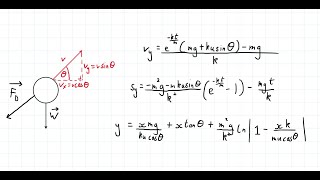 v
v_y = v sinθ
θ
v_x = v cosθ
F_D
W
v_y = e^(-kt/m) (mg + ku sinθ) - mg / k
s_y = -m²g - mku sinθ / k² (e^(-kt/m) - 1) - mgt / k
y = xmg / ku cosθ + x tanθ + m²g / k² ln | 1 - xk / mu cosθ |